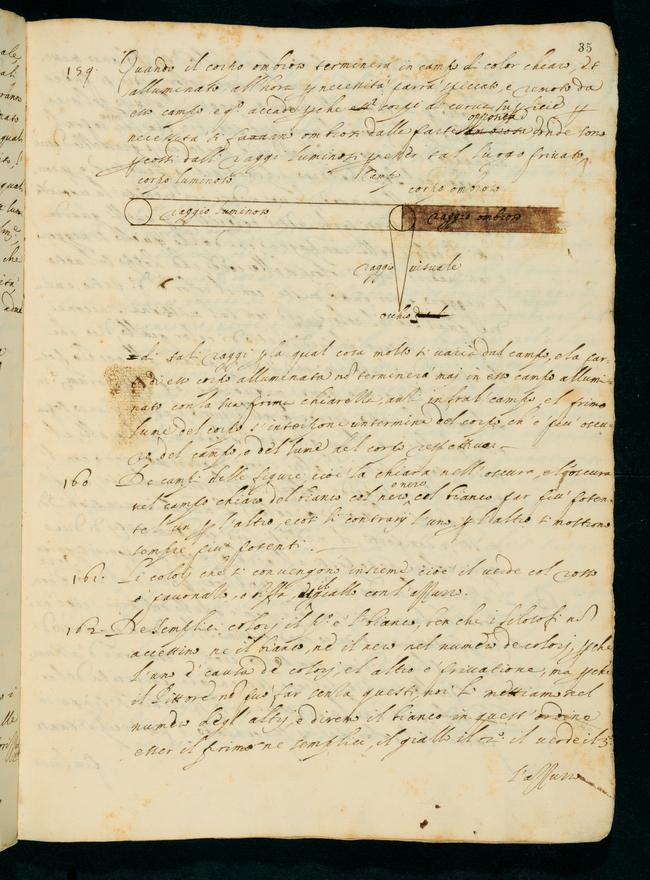 35
159. Quando il corpo ombroso terminerà in campo di color chiaro, et
alluminato all'hora necessità parrà spiccato, e remoto da
esso campo e q.o accade che corpi di curva superficie
necessità si ombrosi dalle parte opposita onde sono
dalli raggi luminosi per esser tal luogo privato,
corpo luminoso
Campo
corpo ombroso
raggio luminoso
raggio ombroso
raggio visuale
occhio
= di tali raggi la qual cosa molto si varia dal campo, e la par
te di esso corpo alluminata nō terminerà mai in esso campo allumi-
nato con la sua prima chiarezza, anzi infra il campo, e'l primo
lume del corpo s'interpone un termine del corpo, ch'è più oscu
ro del campo, o del lume nel corpo respettivo. –
160 De campi delle figure cioè la chiara nell'oscura, e l'oscura
nel campo chiaro del bianco col nero, o nero col bianco par più poten-
te l'un l'altro, e così li contrarij l'uno l'altro si mostrono
sempre più potenti. –
161. Li colorj che si convengono insieme cioè il verde col rosso
o pavonazo, o biffa, il giallo con l'assurro.
162. De semplici colorj il p.o è 'l bianco, ben che i filosofi nō
accettino ne il bianco, ne il nero nel numero de colorj, perche
l'uno è causa de colorj, el altro è privatione, ma perche
il Pittore nō può far senza questi, noi li mettiamo nel
numero degl'altrj, e diremo il bianco in quest'ordine
esser il primo ne semplici, il giallo il 2.o il verde il 3.o
l'assurro